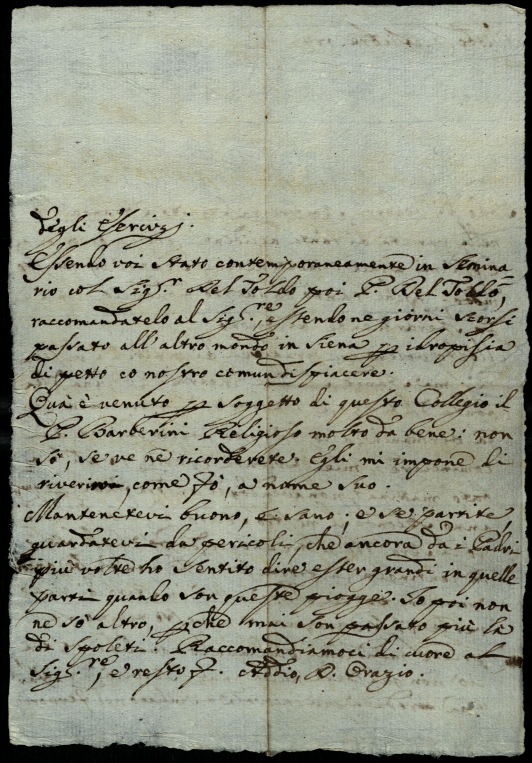 degli Esercizj.
Essendo voi stato contemporaneamente in Semina
rio col Sig.r Del Toldo poi P. Del Toldo,
raccomandatelo al Sig.re, essendo ne giorni scorsi
passato all'altro mondo in Siena p idropisia
di petto co nostro comun dispiacere.
Quà è venuto p soggetto di questo Collegio il
P. Barberini Religioso molto da bene: non
sò, se ve ne ricorderete. Egli mi impone di
riverirvi, come fò, a nome suo.
Mantenetevi buono, e sano; e se partite,
guardatevi da pericoli, che ancora da i Padri
più volte ho sentito dire esser grandi in quelle
parti quando son queste piogge. Io poi non
ne sò altro, pche mai son passato più là
di Spoleti. Raccomandiamoci di cuore al
Sig.re, e resto. Addio, D. Orazio.